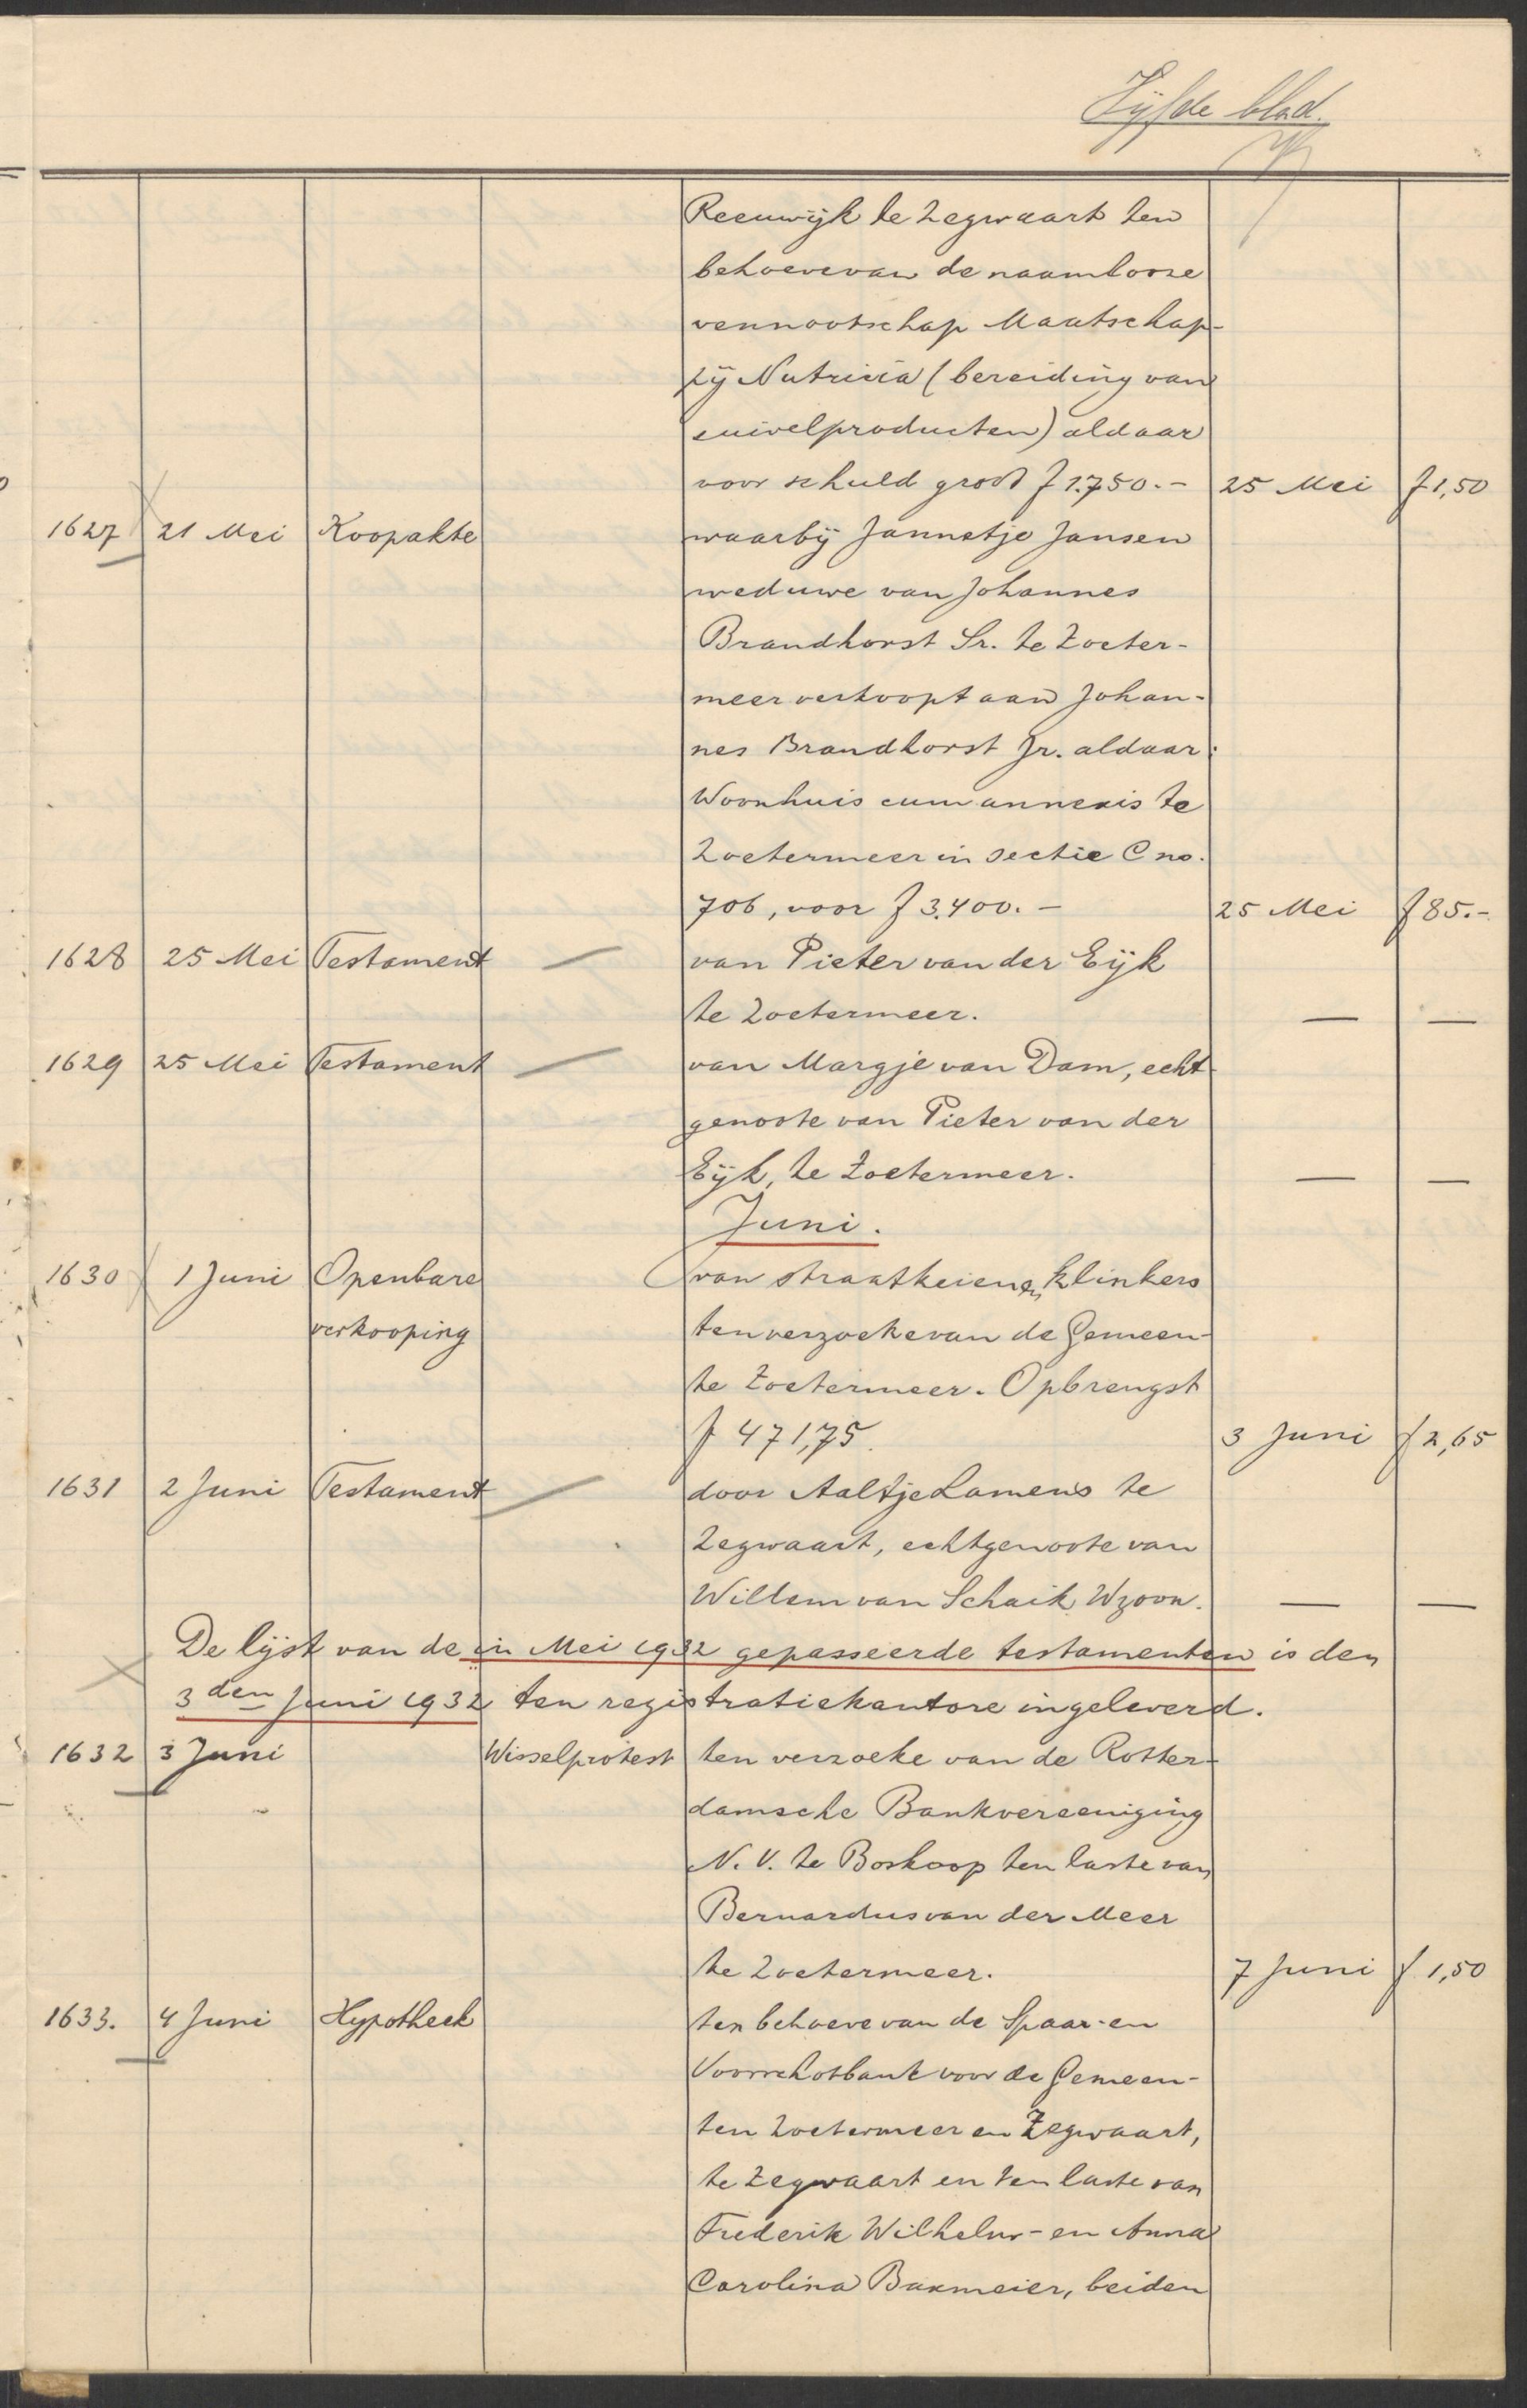 Vijfde blad.
Reeuwijk te Zegwaart ten
behoeve van de naamlooze
vennootschap Maatschap-
pij Nutricia (bereiding van
zuivelproducten) aldaar
voor schuld groot f 1.750.- 25 Mei f 1,50
1627 21 Mei Koopakte waarbij Jannetje Jansen
weduwe van Johannes
Brandhorst Sr. te Zoeter-
meer verkoopt aan Johan-
nes Brandhorst Jr. aldaar:
Woonhuis cum annexis te
Zoetermeer in sectie C no.
706, voor f 3.400.- 25 Mei f 85.-
1628 25 Mei Testament — van Pieter van der Eijk
te Zoetermeer. — —
1629 25 Mei Testament — van Margje van Dam, echt-
genoote van Pieter van der
Eijk, te Zoetermeer. — —
Juni.
1630 1 Juni Openbare van straatkeien en klinkers
verkooping ten verzoeke van de Gemeen-
te Zoetermeer. Opbrengst
f 471,75. 3 Juni f 2,65
1631 2 Juni Testament — door Aaltje Lamens te
Zegwaart, echtgenoote van
Willem van Schaik Wzoon. — —
De lijst van de in Mei 1932 gepasseerde testamenten is den
3den Juni 1932 ten registratiekantore ingeleverd.
1632 3 Juni Wisselprotest ten verzoeke van de Rotter-
damsche Bankvereeniging
N.V. te Boskoop ten laste van
Bernardus van der Meer
te Zoetermeer. 7 Juni f 1,50
1633. 4 Juni Hypotheek ten behoeve van de Spaar- en
Voorschotbank voor de Gemeen-
ten Zoetermeer en Zegwaart,
te Zegwaart en ten laste van
Frederik Wilhelm- en Anna
Carolina Baxmeier, beiden